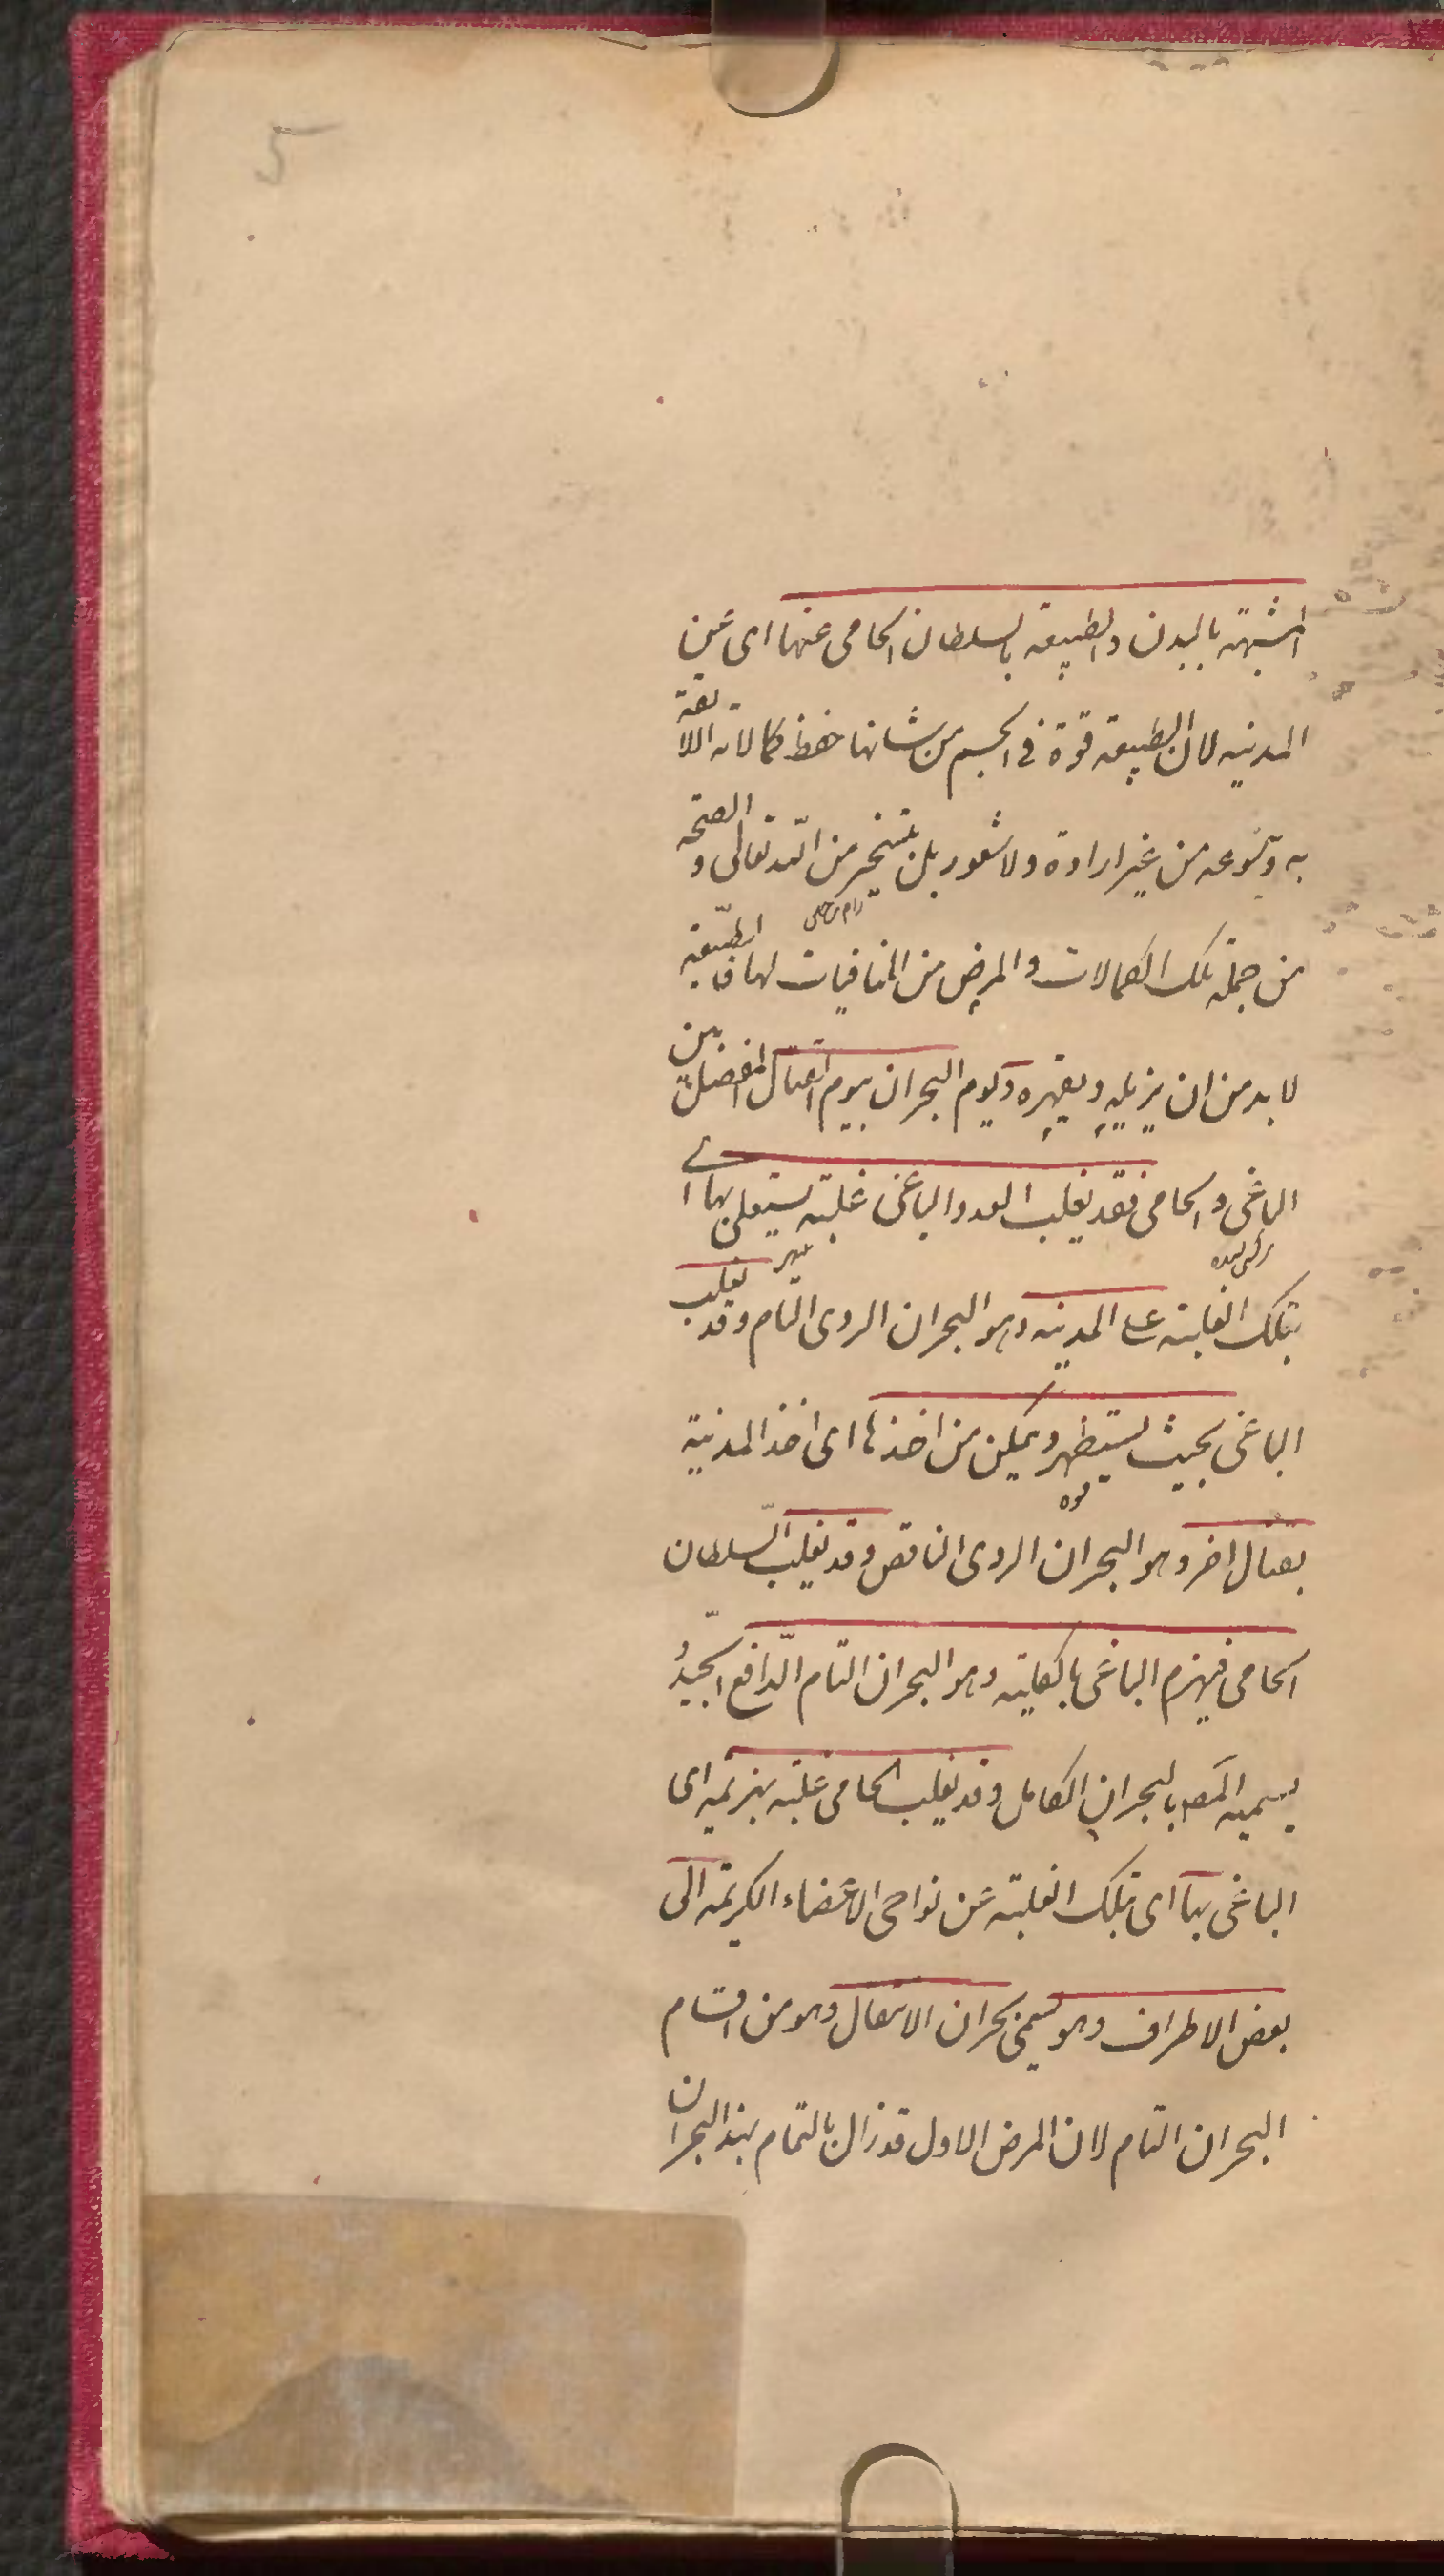 5
المشبهة بالبدن والطبيعة بالسلطان الحامى عنها اى عن
المدينه لان الطبيعة قوة فى الجسم من شانها حفظ كمالاته اللائقة
به وبنوعه من غير ارادة ولا شعور بل بتسخير من الله تعالى والصحة
من جملة تلك الكمالات والمرض من المنافيات لها فالطبيعة
لا بد من ان يزيله ويقهره ويوم البحران بيوم القتال الفصل بين
الباغى والحامى فقد يغلب العدو الباغى غلبة يستعلى بها اے
بتلك الغلبة على المدينه وهو البحران الردى التام وقد يغلب
الباغى بحيث يستظهر ويمكن من اخذها اى اخذ المدينة
بقتال اخر وهو البحران الردى الناقص وقد يغلب السلطان
الحامى فيهزم الباغى بالكلية وهو البحران التام الدافع الجيد و
يسميه المص بالبحران الكامل وقد يغلب الحامى غلبة يهزمه اى
الباغى بها اى بتلك الغلبة عن نواحى الاعضاء الكريمة الى
بعض الاطراف وهو يسمى بحران الانتقال وهو من اقسام
البحران التام لان المرض الاول قد زال بالتمام بهذا البحران